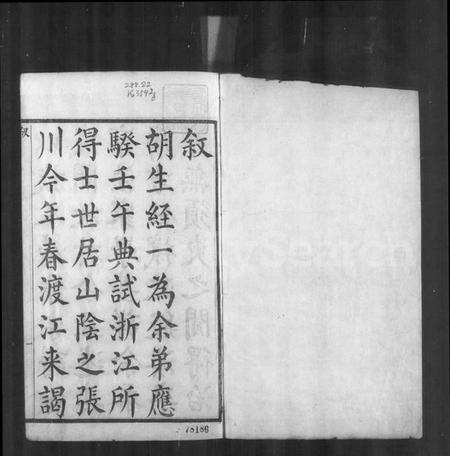 288.82
叙
胡生經一為余弟應
騤壬午典試浙江所
得士世居山陰之張
川今年春渡江来謁
叙
10106